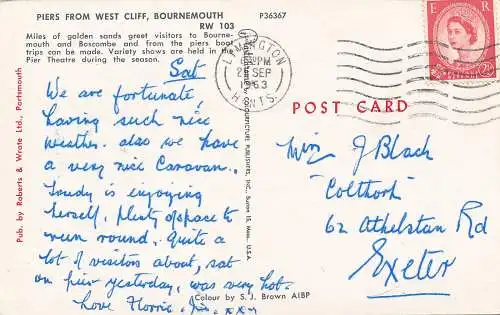 PIERS FROM WEST CLIFF, BOURNEMOUTH P36367
RW 103
Miles of golden sands greet visitors to Bourne-
mouth and Boscombe and from the piers boat
trips can be made. Variety shows are held in the
Pier Theatre during the season.
Sat
We are fortunate
having such nice
weather. also we have
a very nice Caravan.
is enjoying
herself, plenty of space to
run round. Quite a
lot of visitors about, sat
on pier yesterday, was very hot.
Love Florrie, Jim. xxx
Colour by S. J. Brown AIBP
Pub. by Roberts & Wrate Ltd., Portsmouth
COLOURPICTURE PUBLISHERS, INC., Boston 15, Mass., U.S.A.
LYMINGTON
PM
SEP
HANTS.
E R
POST CARD
Miss J Black
"Colthorf"
62 Athelstan Rd
Exeter